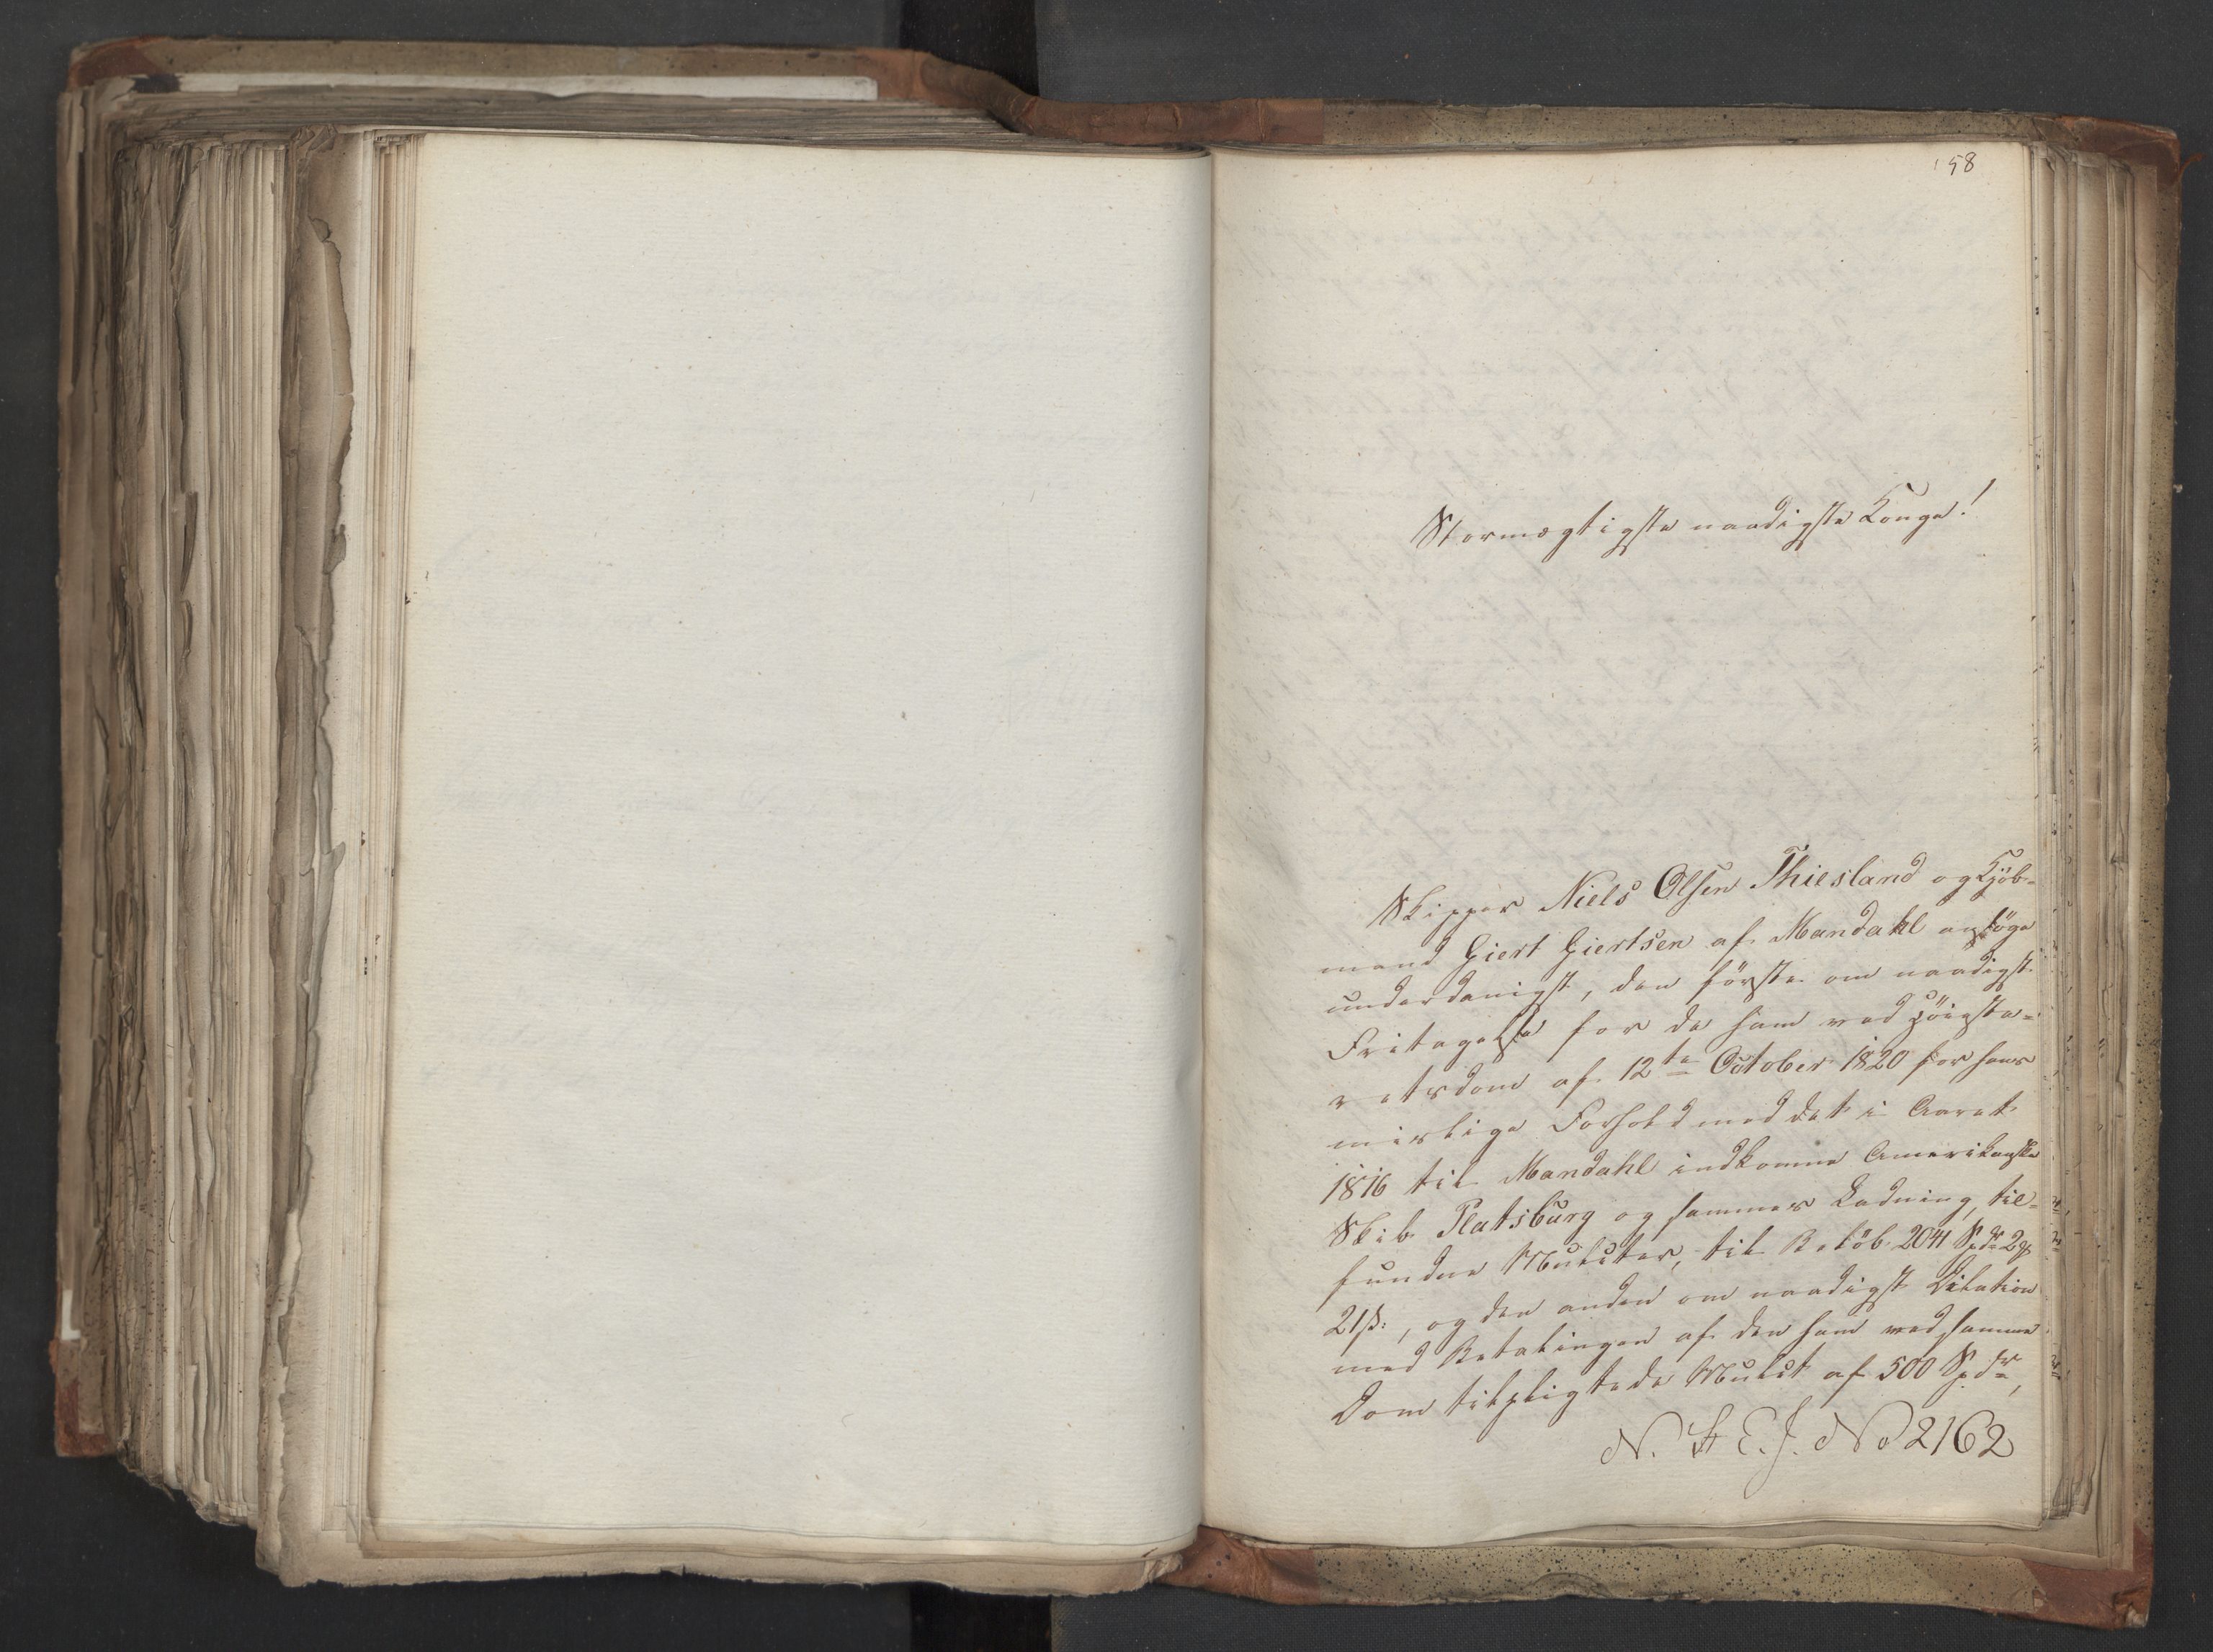 158
Stormægtigste naadigste Konge!
Skipper Niels Olsen Thiesland og Kjöb-
mand Giert Giertsen af Mandahl ansöge
underdanigst, den förste om naadigst
Fritagelse for de ham ved Höieste-
retsdom af 12te October 1820 for hans
mislige Forhold med det i Aaret
1816 til Mandahl indkomne Amerikanske
Skib Platsburg og sammes Ladning, til-
fundne Mulcter, til Belöb 2041 Spdr 2
21 ß:, og den anden om naadigst Dilation
med Betalingen af den ham ved samme
Dom tilpligtede Mulct af 500 Spdr,
N. St E. J. No 2162